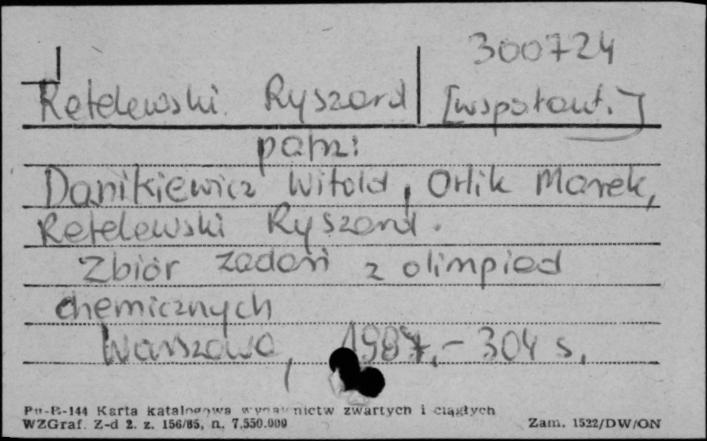 300724
Retelewski Ryszard [współaut.]
patrz:
Danikiewicz Witold, Orlik Marek,
Retelewski Ryszard.
Zbiór zadań z olimpiad
chemicznych
Warszawa, 1987.- 304 s.
Pu-B-144 Karta katalogowa wydawnictw zwartych i ciągłych
WZGraf. Z-d 2. z. 156/85, n. 7.550.000 Zam. 1522/DW/ON